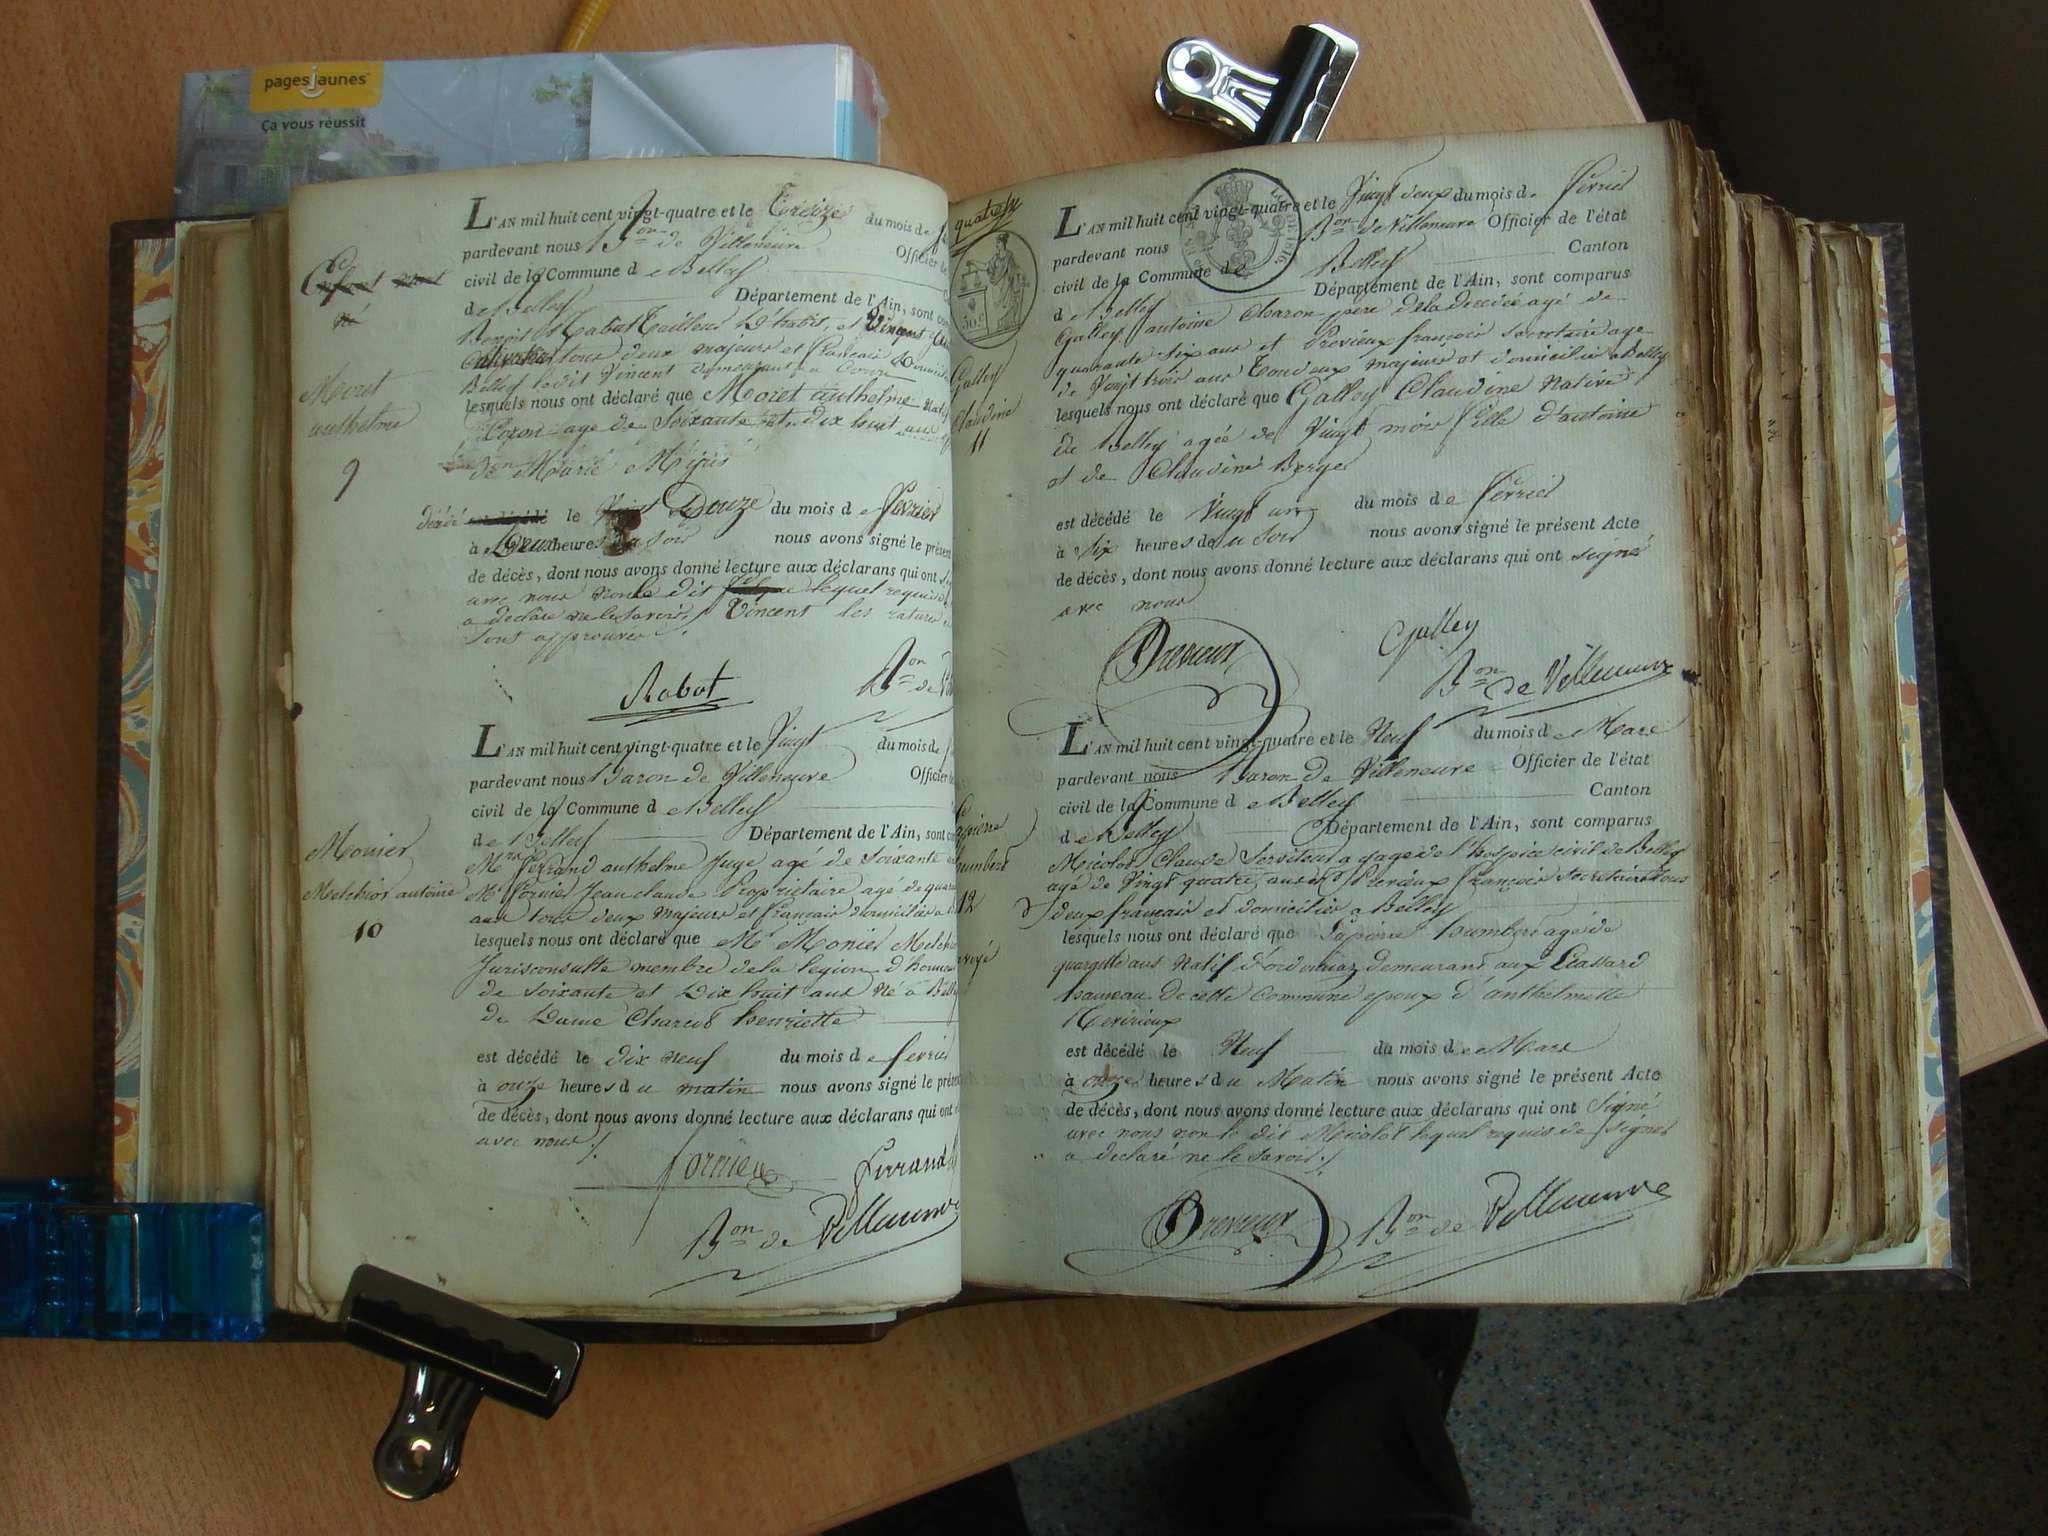 pagesjaunes
Ça vous réussit
L'AN mil huit cent vingt-quatre et le Treize du mois de
pardevant nous Bon de Villeneuve Officier de
civil de la Commune de Belley
de Belley Département de l'Ain, sont com
Benoit Rabut Tailleur D'habit, et Vincent
Cultivateur tous deux majeurs et français
Belley ledit Vincent demeurant a
lesquels nous ont déclaré que Moret anthelme
age de Soixante et dix huit ans
de Marie
décédé est décédé le Douze du mois de fevrier
à Deux heures du soir nous avons signé le présent
de décès, dont nous avons donné lecture aux déclarans qui ont
avec nous non le dit lequel requis
a declaré ne le savoir. Vincent les ratures
sont approuvées
Rabut
Bon de
Enfant mort
né
Moret
anthelme
9
L'AN mil huit cent vingt-quatre et le Vingt du mois de
pardevant nous Baron de Villeneuve Officier
civil de la Commune de Belley
de Belley Département de l'Ain, sont com
Mre Ferrand anthelme Juge agé de soixante
Mr fornier Jean claude Proprietaire agé de
ans tous deux majeurs et français domiciliés a
lesquels nous ont déclaré que Mr Monier
Jurisconsulte membre de la legion d'honneur
de soixante et Dix huit ans Né à Belley
de Dame Charcot henriette
est décédé le dix neuf du mois de fevrier
à onze heures du matin nous avons signé le présent
de décès, dont nous avons donné lecture aux déclarans qui ont
avec nous
fornier
Ferrand
Bon de Villeneuve
Monier
Melchior antoine
10
quatre
50 c
L'AN mil huit cent vingt-quatre et le Vingt deux du mois de fevrier
pardevant nous Bon de Villeneuve Officier de l'état
civil de la Commune de Belley Canton
de Belley Département de l'Ain, sont comparus
Galley antoine Charon pere de la decedée agé de
quarante six ans et Previeux françois secretaire age
de Vingt trois ans Tous deux majeurs et domiciliés a Belley
lesquels nous ont déclaré que Galley Claudine Native
de Belley agée de Vingt mois fille d'antoine
et de Claudine Berger
est décédé le Vingt un du mois de fevrier
à Six heures du soir nous avons signé le présent Acte
de décès, dont nous avons donné lecture aux déclarans qui ont signé
avec nous
Galley
Previeux
Bon de Villeneuve
Galley
Claudine
11
L'AN mil huit cent vingt-quatre et le Neuf du mois de Mars
pardevant nous Baron de Villeneuve Officier de l'état
civil de la Commune de Belley Canton
de Belley Département de l'Ain, sont comparus
Micolot Claude Serviteur a gage de l'hospice civil de Belley
agé de Vingt quatre ans et Previeux françois secretaire tous
deux français et domiciliés a Belley
lesquels nous ont déclaré que Lapierre humbert agé de
ans Natif d'ordonnaz demeurant aux
hameau de cette Commune epoux d'anthelmette
est décédé le Neuf du mois de Mars
à onze heures du Matin nous avons signé le présent Acte
de décès, dont nous avons donné lecture aux déclarans qui ont signé
avec nous non le dit Micolot lequel requis de signer
a declaré ne le savoir
Previeux
Bon de Villeneuve
12